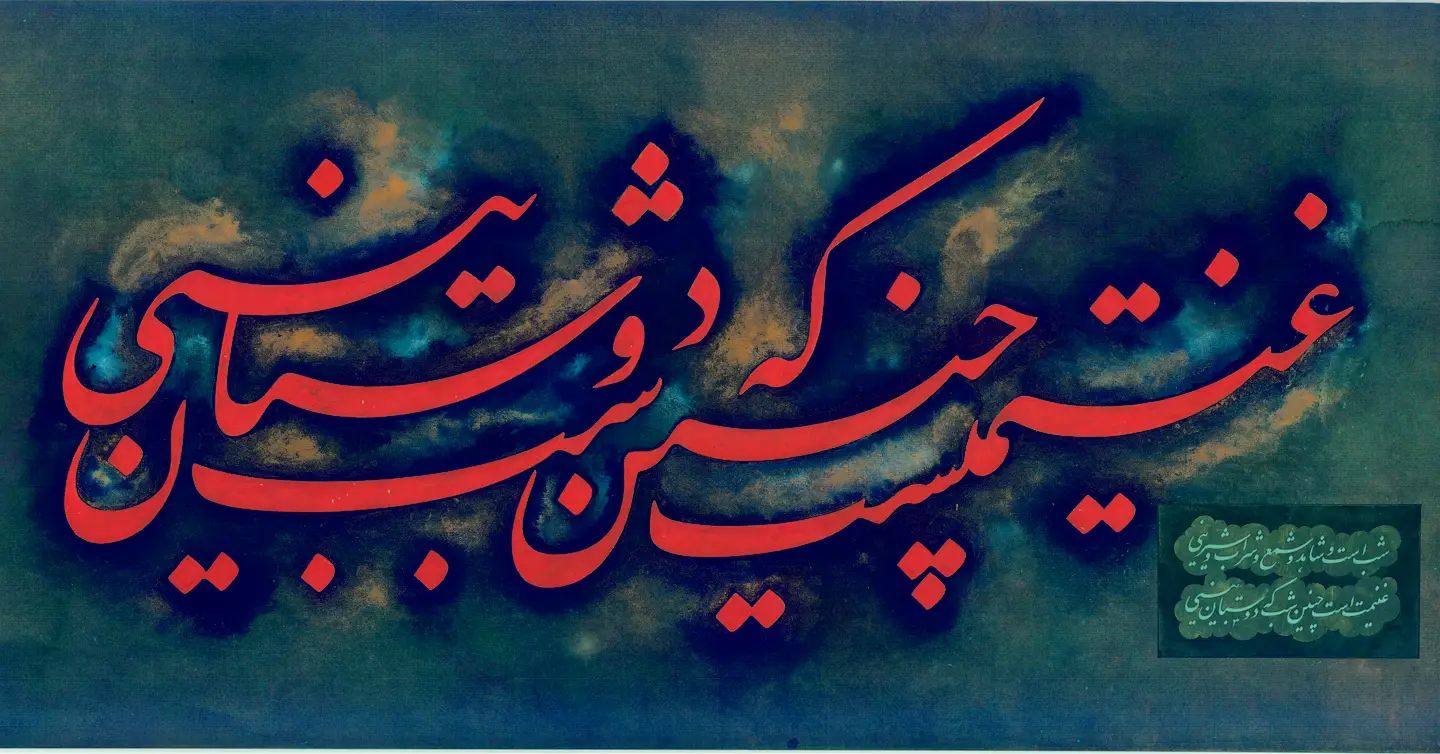 غنیمتست چنین شب که دوستان بینی
شب است و شاهد و شمع و شراب و شیرینی
غنیمت است چنین شب که دوستان بینی